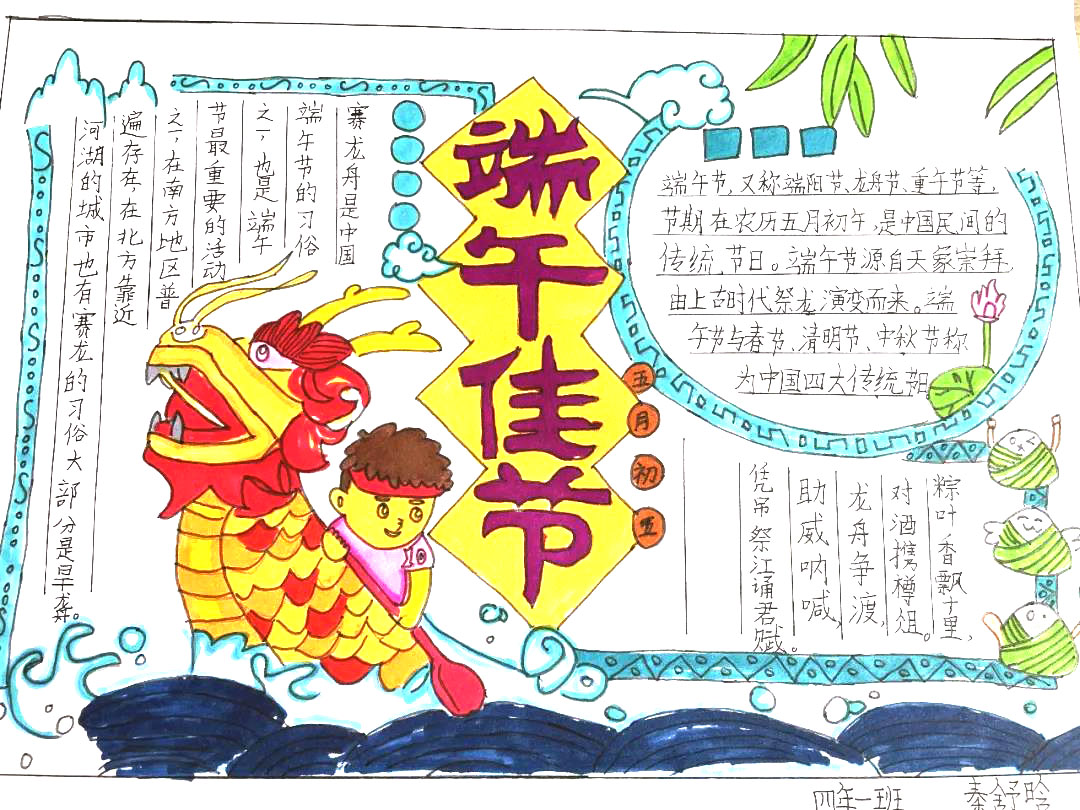 端午佳节
五月初五
赛龙舟是中国
端午节的习俗
之一,也是端午
节最重要的活动
之一,在南方地区普
遍存在,在北方靠近
河湖的城市也有赛龙的习俗大部分是旱龙舟。
端午节,又称端阳节、龙舟节、重午节等,
节期在农历五月初午,是中国民间的
传统节日。端午节源自天象崇拜,
由上古时代祭龙演变而来。端
午节与春节、清明节、中秋节称
为中国四大传统
粽叶香飘十里,
对酒携樽俎。
龙舟争渡,
助威呐喊,
凭吊祭江诵君赋。
四年一班
秦舒晗